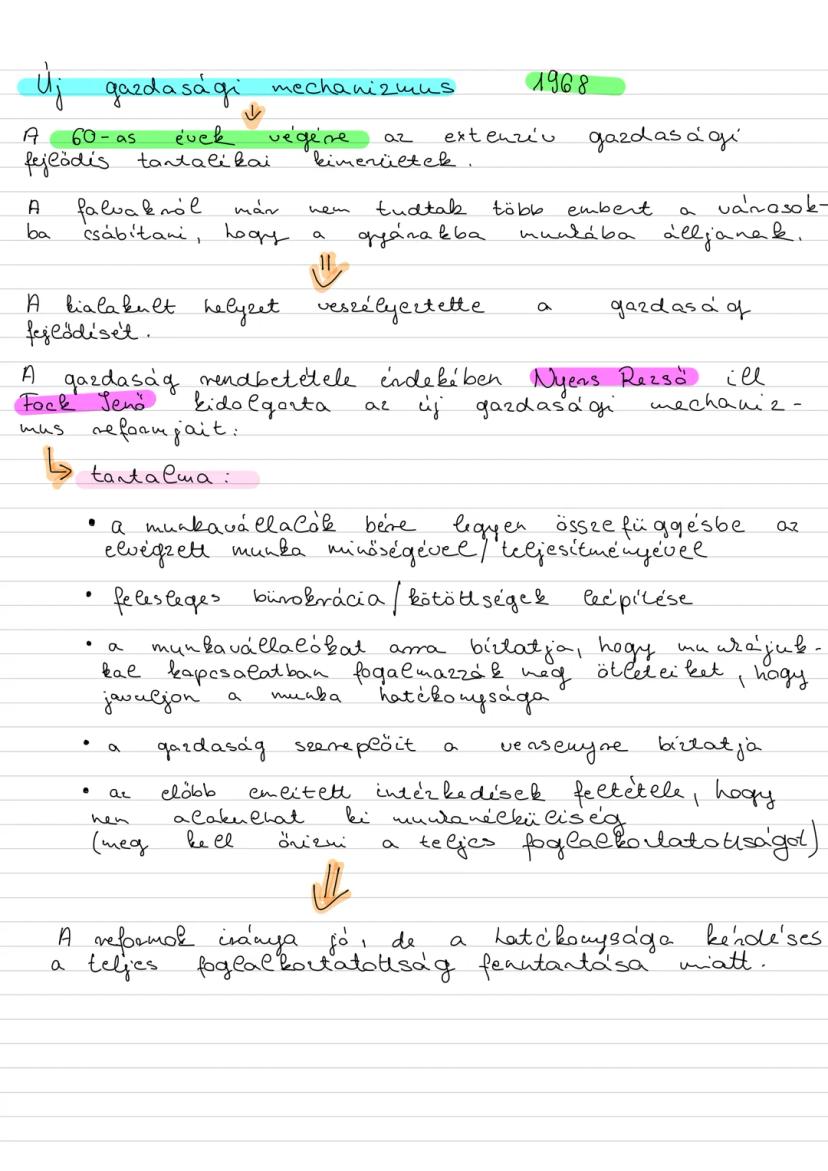 Új gazdasági mechanizmus 1968
A 60-as évek végére az extenzív gazdasági
fejlődés tartalékai kimerültek.
A falvakról már nem tudtak több embert a városok-
ba csábítani, hogy a gyárakba munkába álljanak.
A kialakult helyzet veszélyeztette a gazdaság
fejlődését.
A gazdaság rendbetétele érdekében Nyers Rezső ill
Fock Jenő kidolgozta az új gazdasági mechaniz-
mus reformjait:
tartalma:
• a munkavállalók bére legyen összefüggésbe az
elvégzett munka minőségével/teljesítményével
• felesleges bürokrácia/kötöttségek leépítése
• a munkavállalókat arra bíztatja, hogy munkájuk-
kal kapcsolatban fogalmazzák meg ötleteiket, hogy
javuljon a munka hatékonysága
• a gazdaság szereplőit a versenyre bíztatja
• az előbb említett intézkedések feltétele, hogy
nem alakulhat ki munkanélküliség
(meg kell őrizni a teljes foglalkoztatottságot)
A reformok iránya jó, de a hatékonysága kérdéses
a teljes foglalkoztatottság fenntartása miatt.